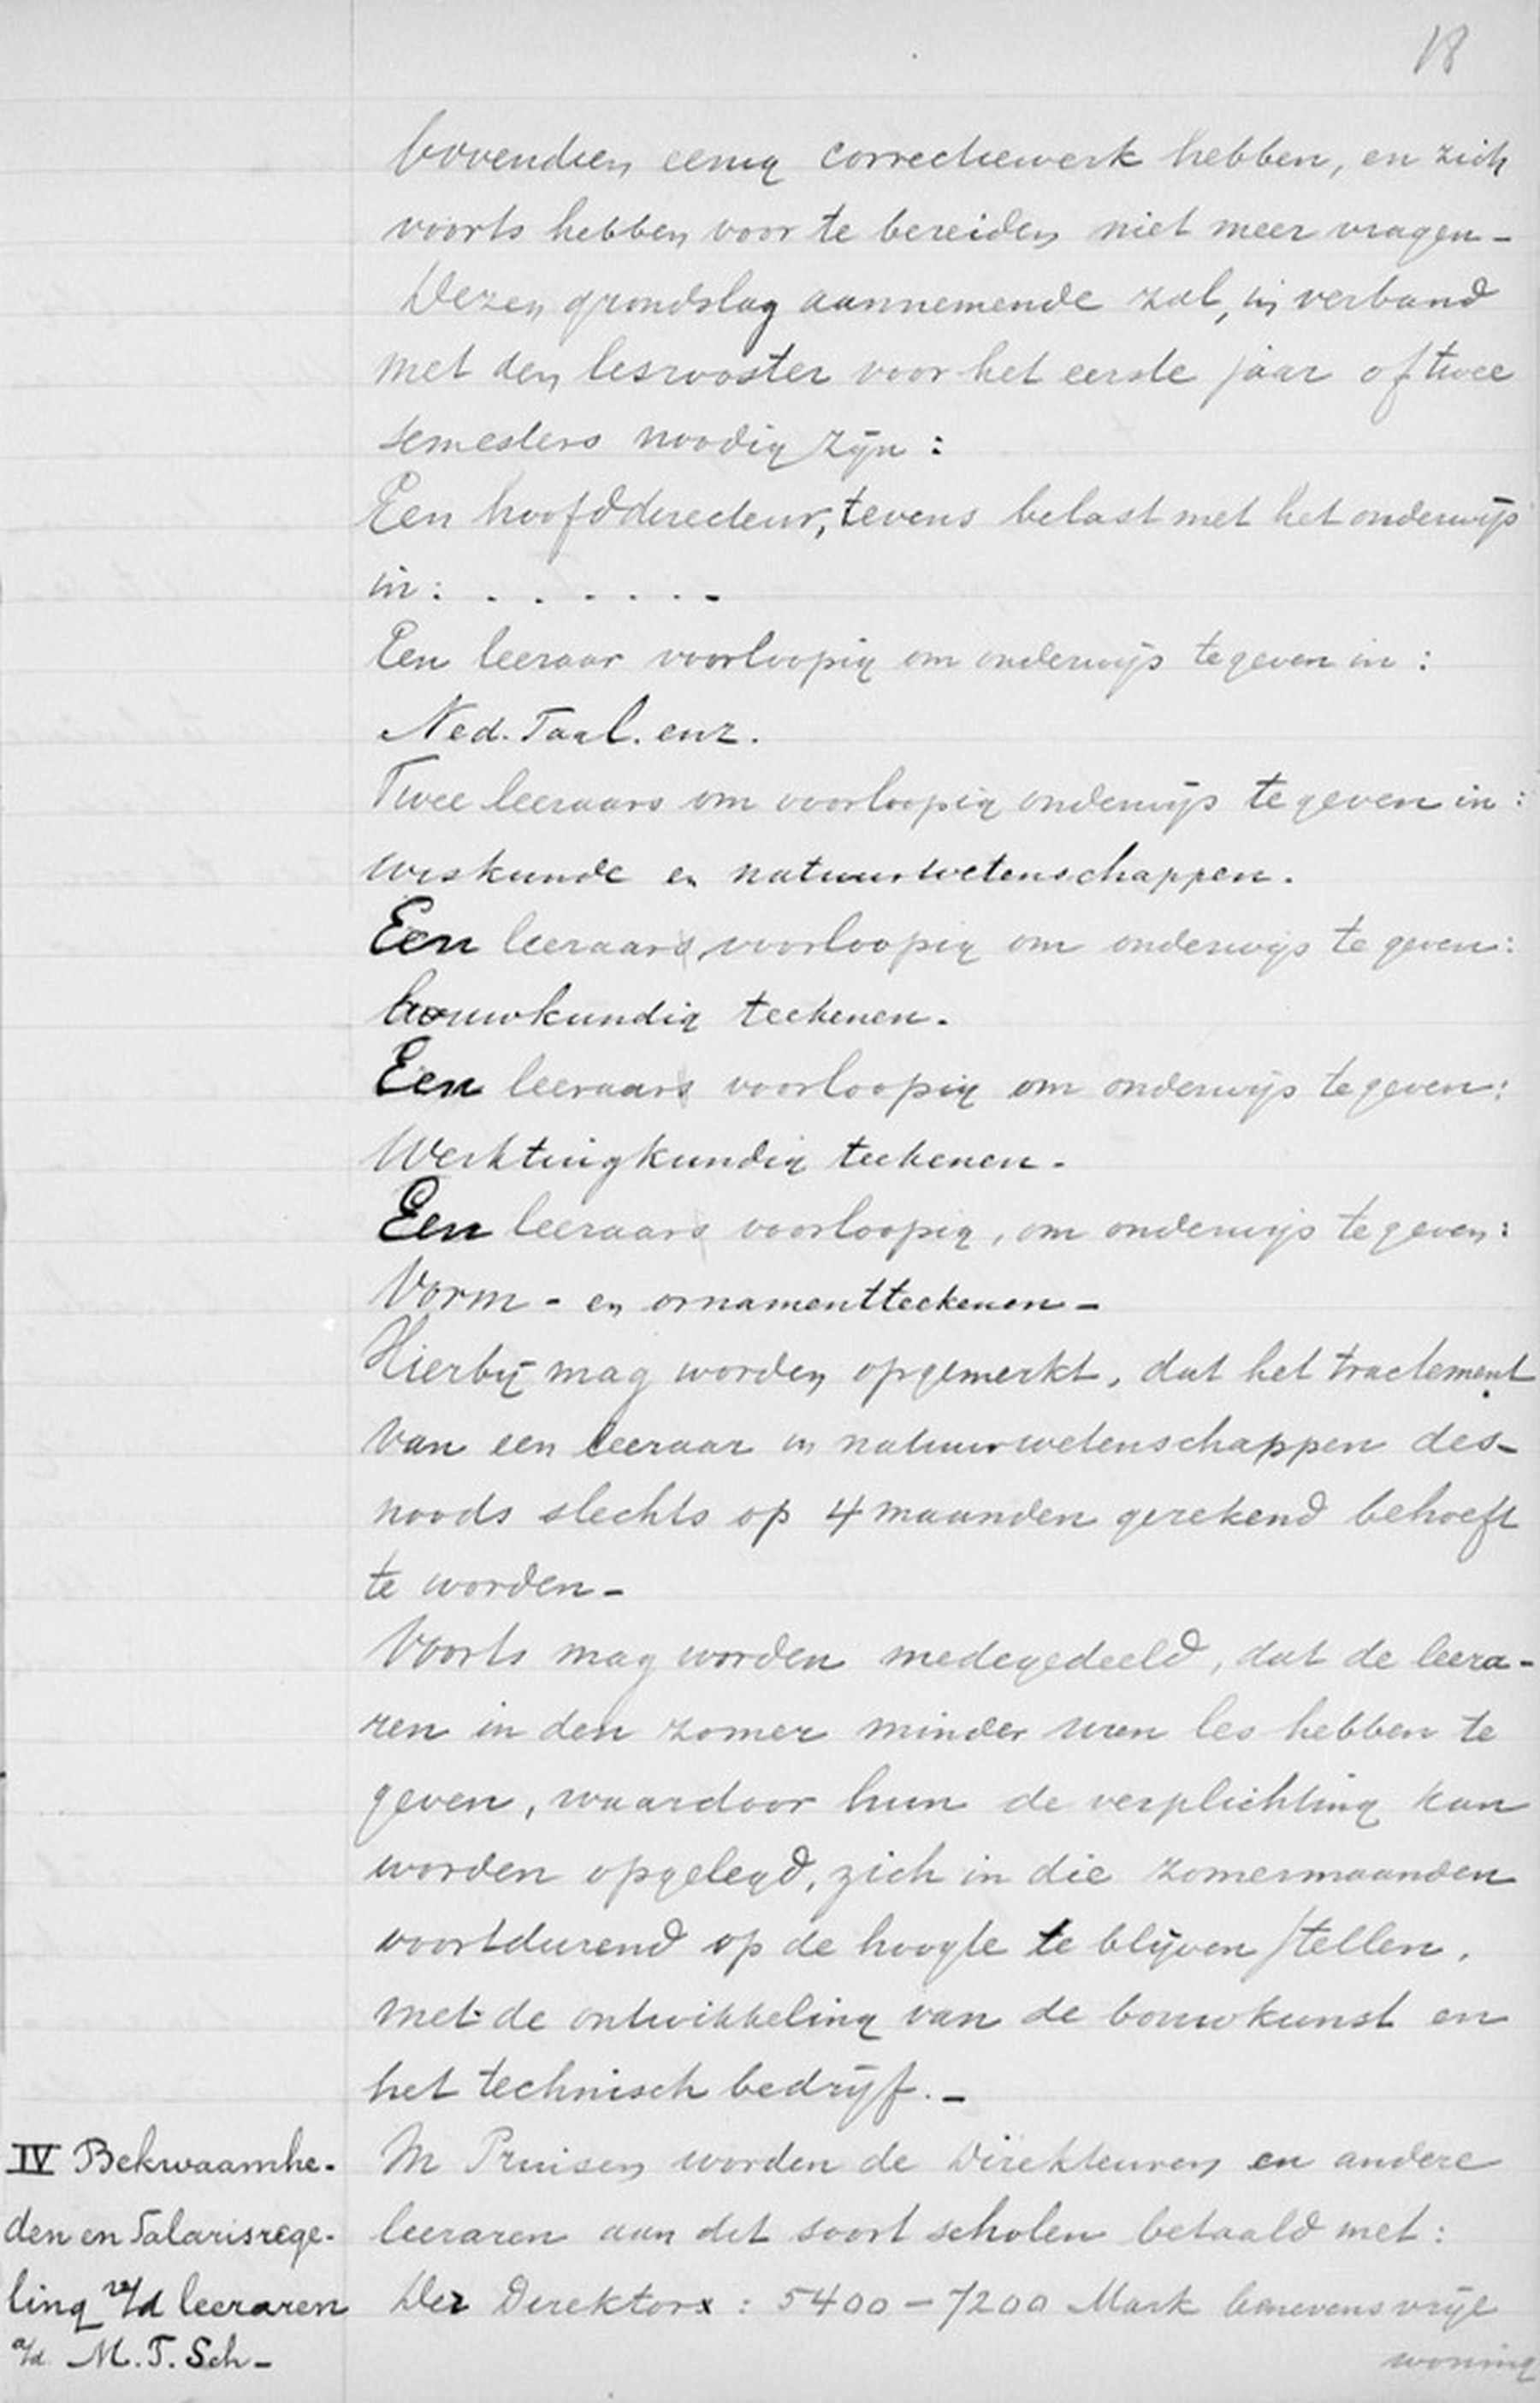 18
bovendien eenig correctiewerk hebben, en zich
voorts hebben voor te bereiden niet meer vragen -
Dezen grondslag aannemende zal, in verband
met den lesrooster voor het eerste jaar of twee
semesters noodig zijn :
Een hoofddirecteur, tevens belast met het onderwijs
in : . . . . . . -
Een leeraar voorloopig om onderwijs te geven in :
Ned. Taal. enz.
Twee leeraars om voorloopig onderwijs te geven in :
wiskunde en natuurwetenschappen.
Een leeraars voorloopig om onderwijs te geven :
bouwkundig teekenen.
Een leeraars voorloopig om onderwijs te geven :
Werktuigkundig teekenen -
Een leeraars voorloopig, om onderwijs te geven :
Vorm - en ornamentteekenen -
Hierbij mag worden opgemerkt, dat het tractement
van een leeraar in natuurwetenschappen des-
noods slechts op 4 maanden gerekend behoeft
te worden -
Voorts mag worden medegedeeld, dat de leera-
ren in den zomer minder uren les hebben te
geven, waardoor hun de verplichting kan
worden opgelegd, zich in die zomermaanden
voortdurend op de hoogte te blijven stellen,
met de ontwikkeling van de bouwkunst en
het technisch bedrijf. -
IV Bekwaamhe-
den en Salarisrege-
ling v/d leeraren
a/d. M. T. Sch -
In Pruisen worden de Direkteuren en andere
leeraren aan dit soort scholen betaald met :
Der Direktor : 5400 - 7200 Mark benevens vrije
woning